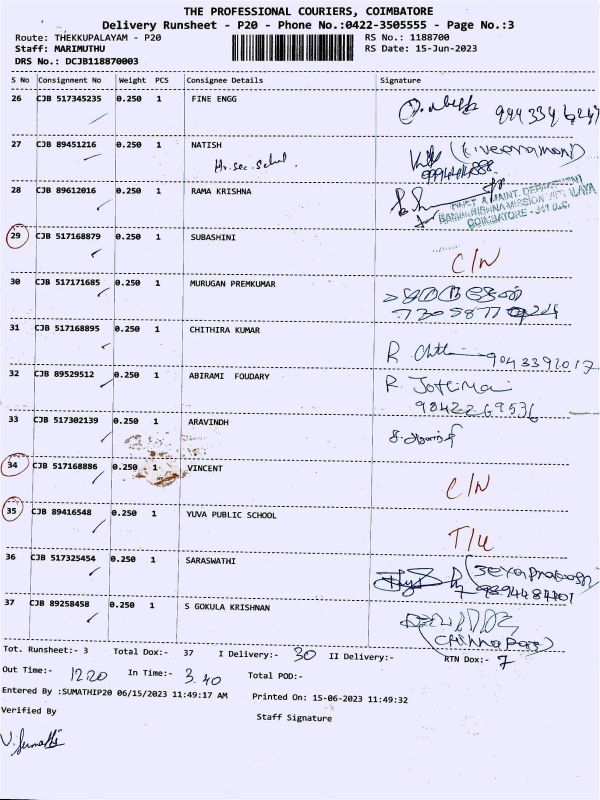 THE PROFESSIONAL COURIERS, COIMBATORE
Delivery Runsheet - P20 - Phone No.:0422-3505555 - Page No.:3
Route: THEKKUPALAYAM - P20 RS No.: 1188700
Staff: MARIMUTHU RS Date: 15-Jun-2023
DRS No.: DCJB118870003
S No Consignment No Weight PCS Consignee Details Signature
26 CJB 517345235 0.250 1 FINE ENGG
27 CJB 89451216 0.250 1 NATISH
Hr.sec.school.
28 CJB 89612016 0.250 1 RAMA KRISHNA
COIMBATORE
29 CJB 517168879 0.250 1 SUBASHINI C/N
30 CJB 517171685 0.250 1 MURUGAN PREMKUMAR
31 CJB 517168895 0.250 1 CHITHIRA KUMAR
R 9043392017
32 CJB 89529512 0.250 1 ABIRAMI FOUDARY R. Jothimai
9842269536
33 CJB 517302139 0.250 1 ARAVINDH
34 CJB 517168886 0.250 1 VINCENT C/N
35 CJB 89416548 0.250 1 YUVA PUBLIC SCHOOL
36 CJB 517325454 0.250 1 SARASWATHI
37 CJB 89258458 0.250 1 S GOKULA KRISHNAN
Tot. Runsheet:- 3 Total Dox:- 37 I Delivery:- 30 II Delivery:- RTN Dox:- 7
Out Time:- 12.20 In Time:- 3.40 Total POD:-
Entered By :SUMATHIP20 06/15/2023 11:49:17 AM Printed On: 15-06-2023 11:49:32
Verified By Staff Signature
V. Sumathi